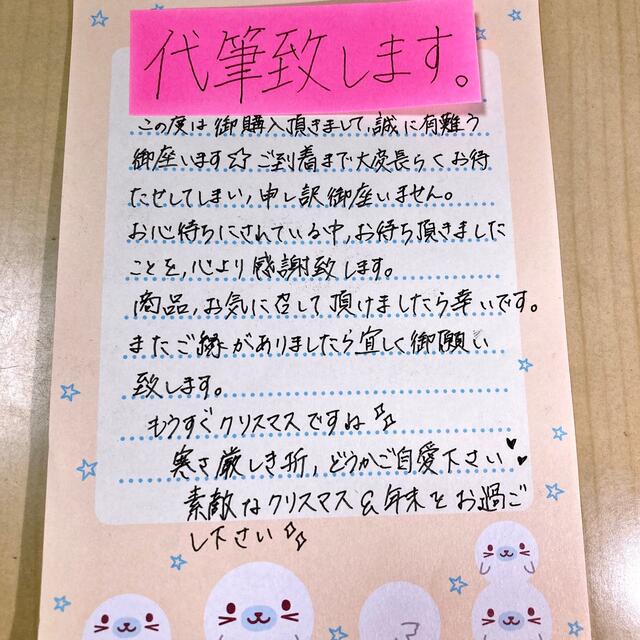 代筆致します。
この度は御購入頂きまして、誠に有難う
御座います☆ご到着まで大変長らくお待
たせしてしまい、申し訳御座いません。
お心待ちにされている中、お待ち頂きました
ことを、心より感謝致します。
商品、お気に召して頂けましたら幸いです。
またご縁がありましたら宜しく御願い
致します。
もうすぐクリスマスですね✨
寒さ厳しき折、どうかご自愛下さい♥♥
素敵なクリスマス&年末をお過ご
し下さい✨